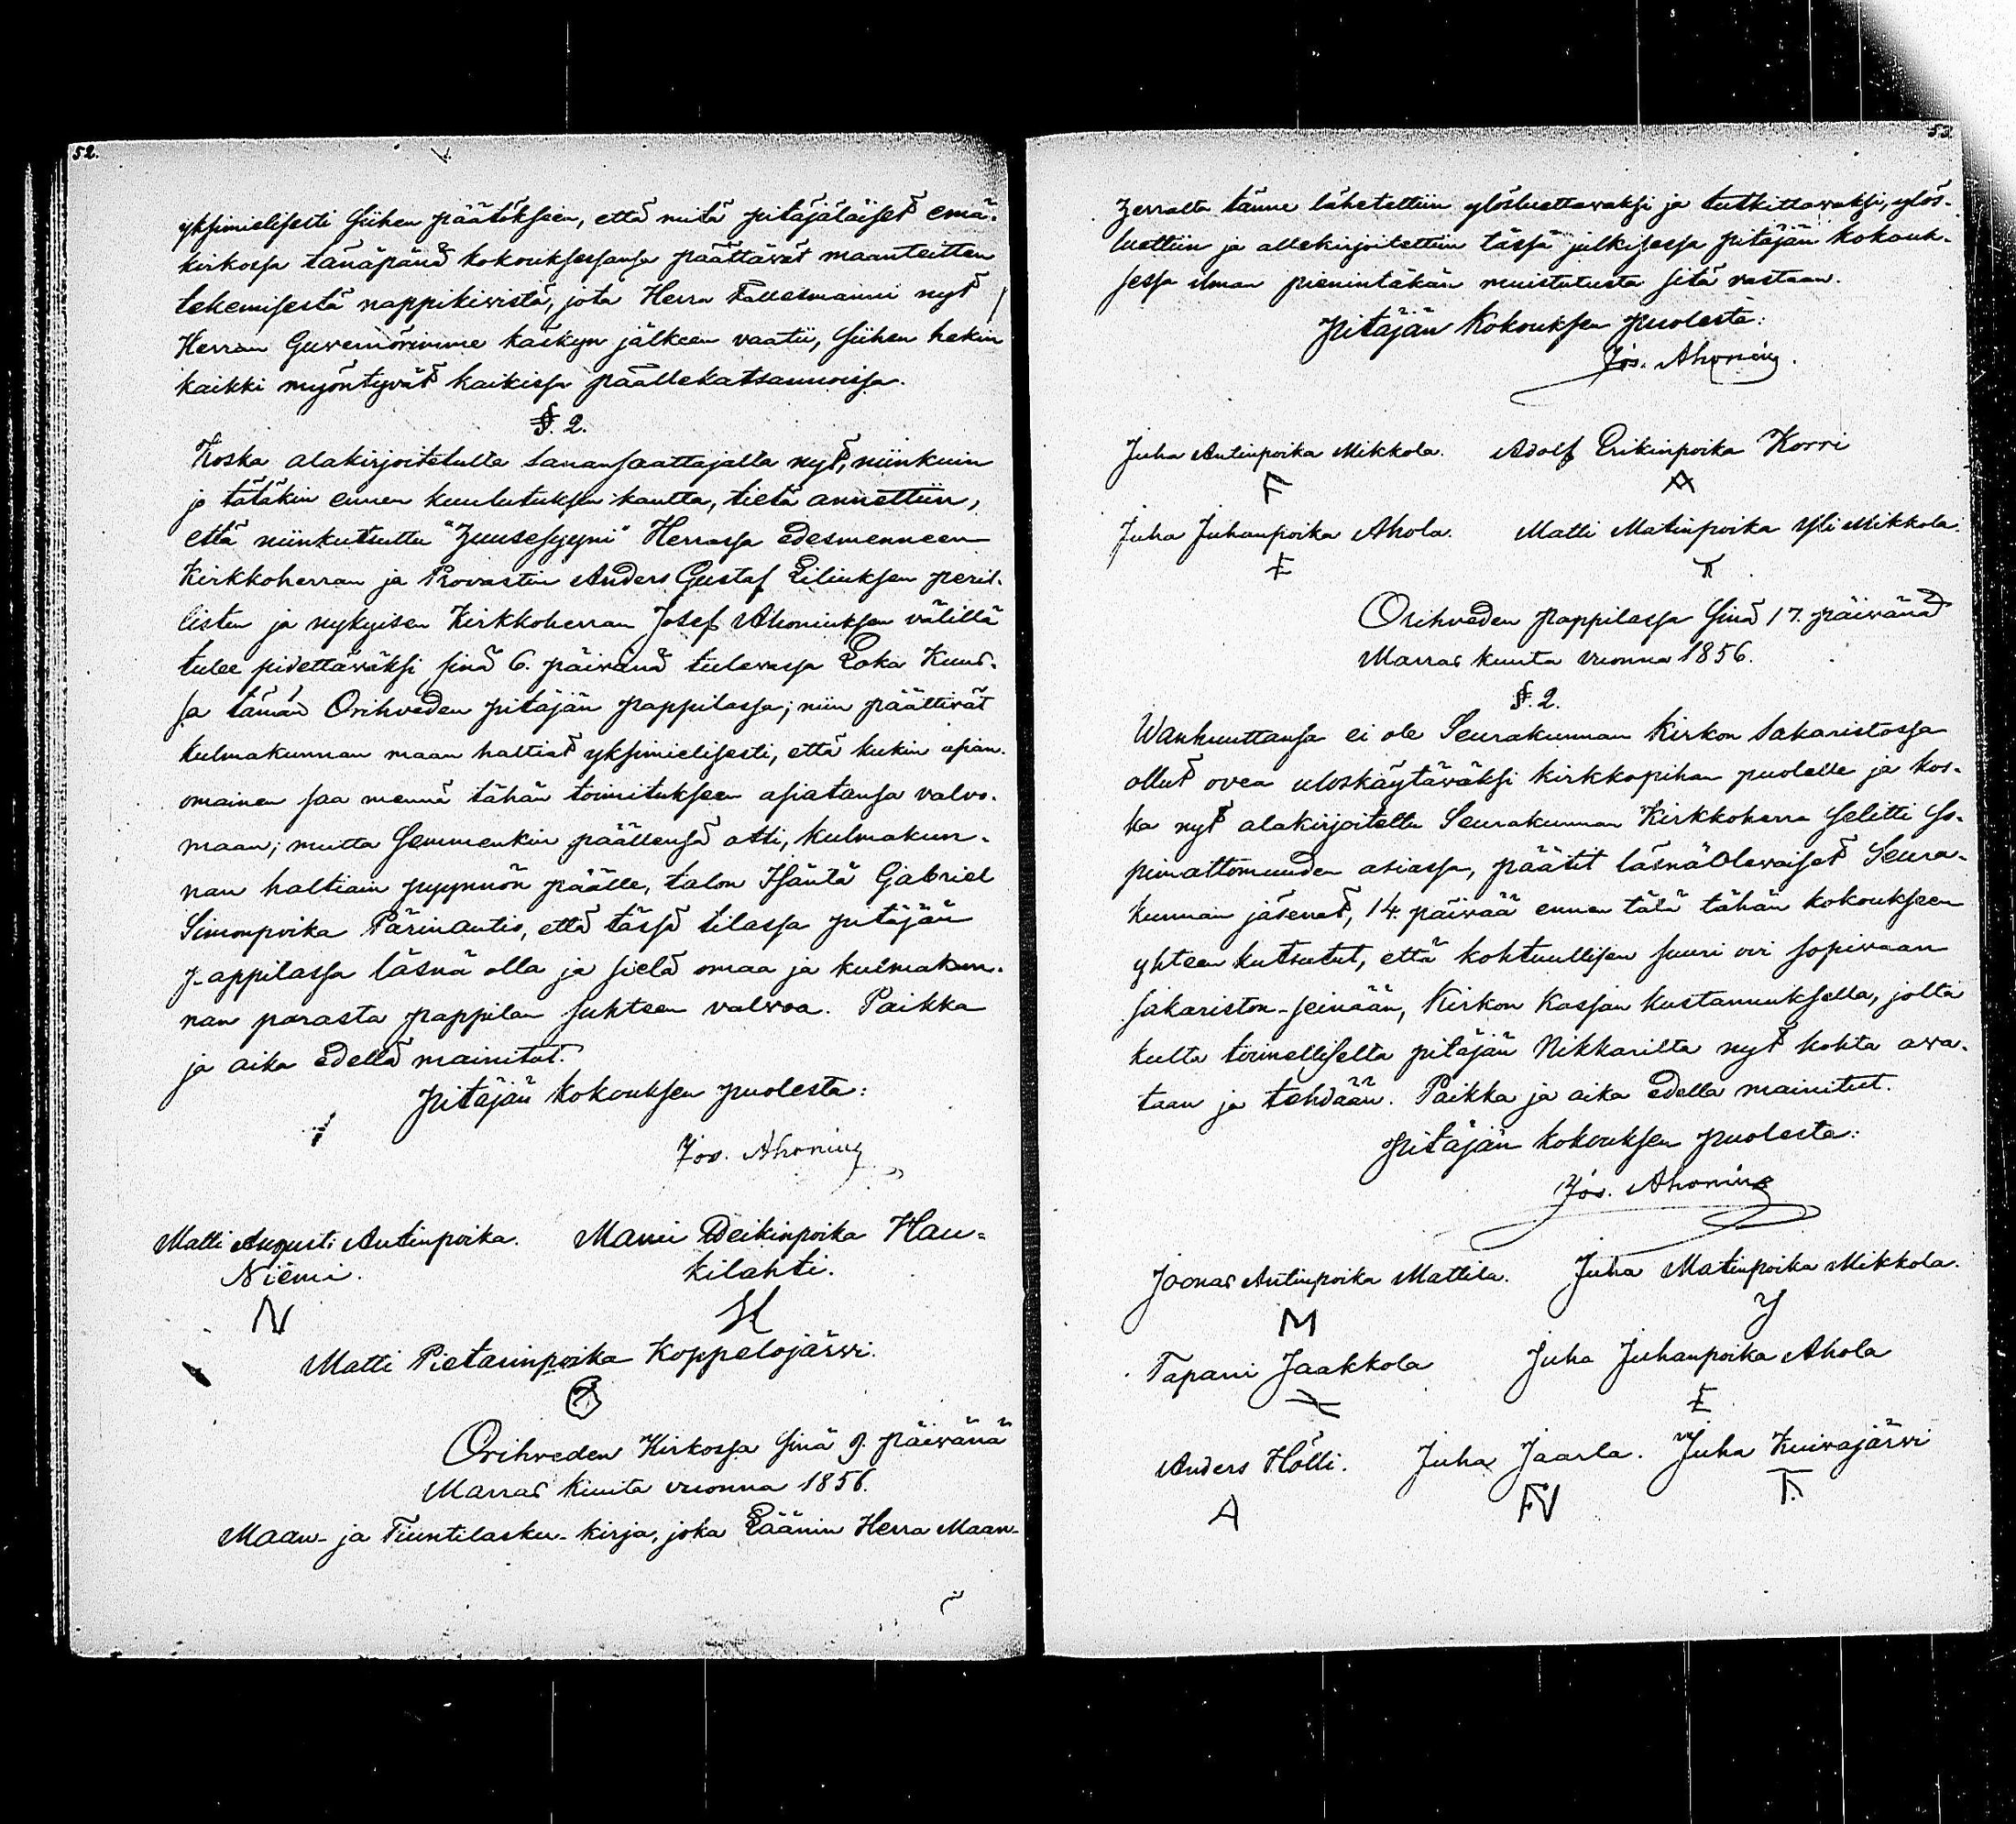 52.
yksimielisesti siihen päätökseen, että mitä pitäjäläiset emä-
kirkossa tänäpänä kokouksessansa päättävät maanteitten
tekemisestä nappikivistä, jota Herra Fallesmanni nyt
Herran Guvernörimme käskyn jälkeen vaatii, siihen hekin
kaikki myöntyvät kaikissa päällekatsannoissa.
§. 2.
Koska alakirjoitetulta sanansaattajalta nyt, niinkuin
jo tätäkin ennen kuulutuksen kautta, tietä annettiin,
että niinkutsuttu "Huusesyyni" Herrassa edesmenneen
Kirkkoherran ja Provastin Anders Gustaf Eiliuksen peril-
listen ja nykyisen Kirkkoherran Josef Ahoniuksen välillä
tulee pidettäväksi sinä 6. päivänä tulevassa Loka Kuus-
sa tämän Orihveden pitäjän pappilassa; niin päättivät
kulmakunnan maan haltiat yksimielisesti, että kukin asian-
omainen saa mennä tähän toimitukseen asiatansa valvo-
maan; mutta semmenkin päällensä otti, kulmakun-
nan haltiain pyynnön päälle, talon Isäntä Gabriel
Simonpoika Pärinantis, että tässä tilassa pitäjän
pappilassa läsnä olla ja sielä omaa ja kulmakun-
nan parasta pappilan suhteen valvoa. Paikka
ja aika edellä mainitut.
Pitäjän kokouksen puolesta:
Jos. Ahonius
Matti Augusti Antinpoika. Manni Eerikinpoika Hau-
Niemi. kilahti.
N H
Matti Pietarinpoika Koppelojärvi.
Orihveden Kirkossa sinä 9. päivänä
Marras kuuta vuonna 1856.
Maan- ja Tiuntilasku-kirja, joka Läänin Herra Maan-
53.
Herralta tänne lähetettiin ylösluettavaksi ja tutkittavaksi, ylös-
luettiin ja allekirjoitettiin tässä julkisessa pitäjän kokouk-
sessa ilman pienintäkän muistutusta sitä vastaan.
Pitäjän Kokouksen puolesta:
Jos. Ahonius.
Juha Antinpoika Mikkola. Adolf Erikinpoika Korri
F A
Juha Juhanpoika Ahola. Matti Matinpoika Yli Mikkola.
Orihveden pappilassa sinä 17. päivänä
Marras kuuta vuonna 1856.
§. 2.
Wanhuuttansa ei ole Seurakunnan Kirkon Sakaristossa
ollut ovea uloskäytäväksi kirkkopihan puolelle ja kos-
ka nyt alakirjoitettu Seurakunnan Kirkkoherra selitti so-
pimattomuuden asiassa, päätit läsnäolevaiset Seura-
kunnan jäsenet, 14. päivää ennen tätä tähän kokoukseen
yhteen kutsutut, että kohtuullisen suuri ovi sopivaan
sakariston-seinään, Kirkon Kassan kustannuksella, jolta
kulta toimelliselta pitäjän Nikkarilta nyt kohta ava-
taan ja tehdään. Paikka ja aika edellä mainitut.
Pitäjän kokouksen puolesta:
Jos. Ahonius
Joonas Antinpoika Mattila. Juha Matinpoika Mikkola.
M Y
Tapani Jaakkola Juha Juhanpoika Ahola
Anders Hölli. Juha Jaarla. Juha Kuivajärvi
A FV T.